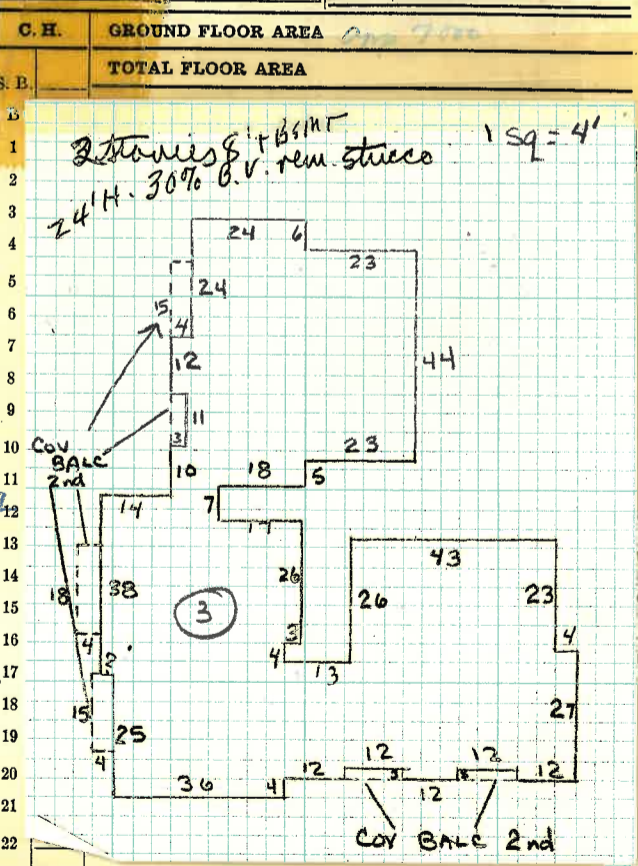 C. H. GROUND FLOOR AREA app 7000
S. B. TOTAL FLOOR AREA
B
1
2
3
4
5
6
7
8
9
10
11
12
13
14
15
16
17
18
19
20
21
22
3 stories 8' + BSMT
1 sq = 4'
24'H. 30% B.V. rem. stucco
24 6
23
24
15
4
12
44
11
3
23
10
18
5
Cov
BALC
2nd
14
7
17
43
26
38
26
23
18
3
3
4
4
4
13
2
27
15
25
12
12
12
4
36
4
3
3
12
Cov BALC 2nd